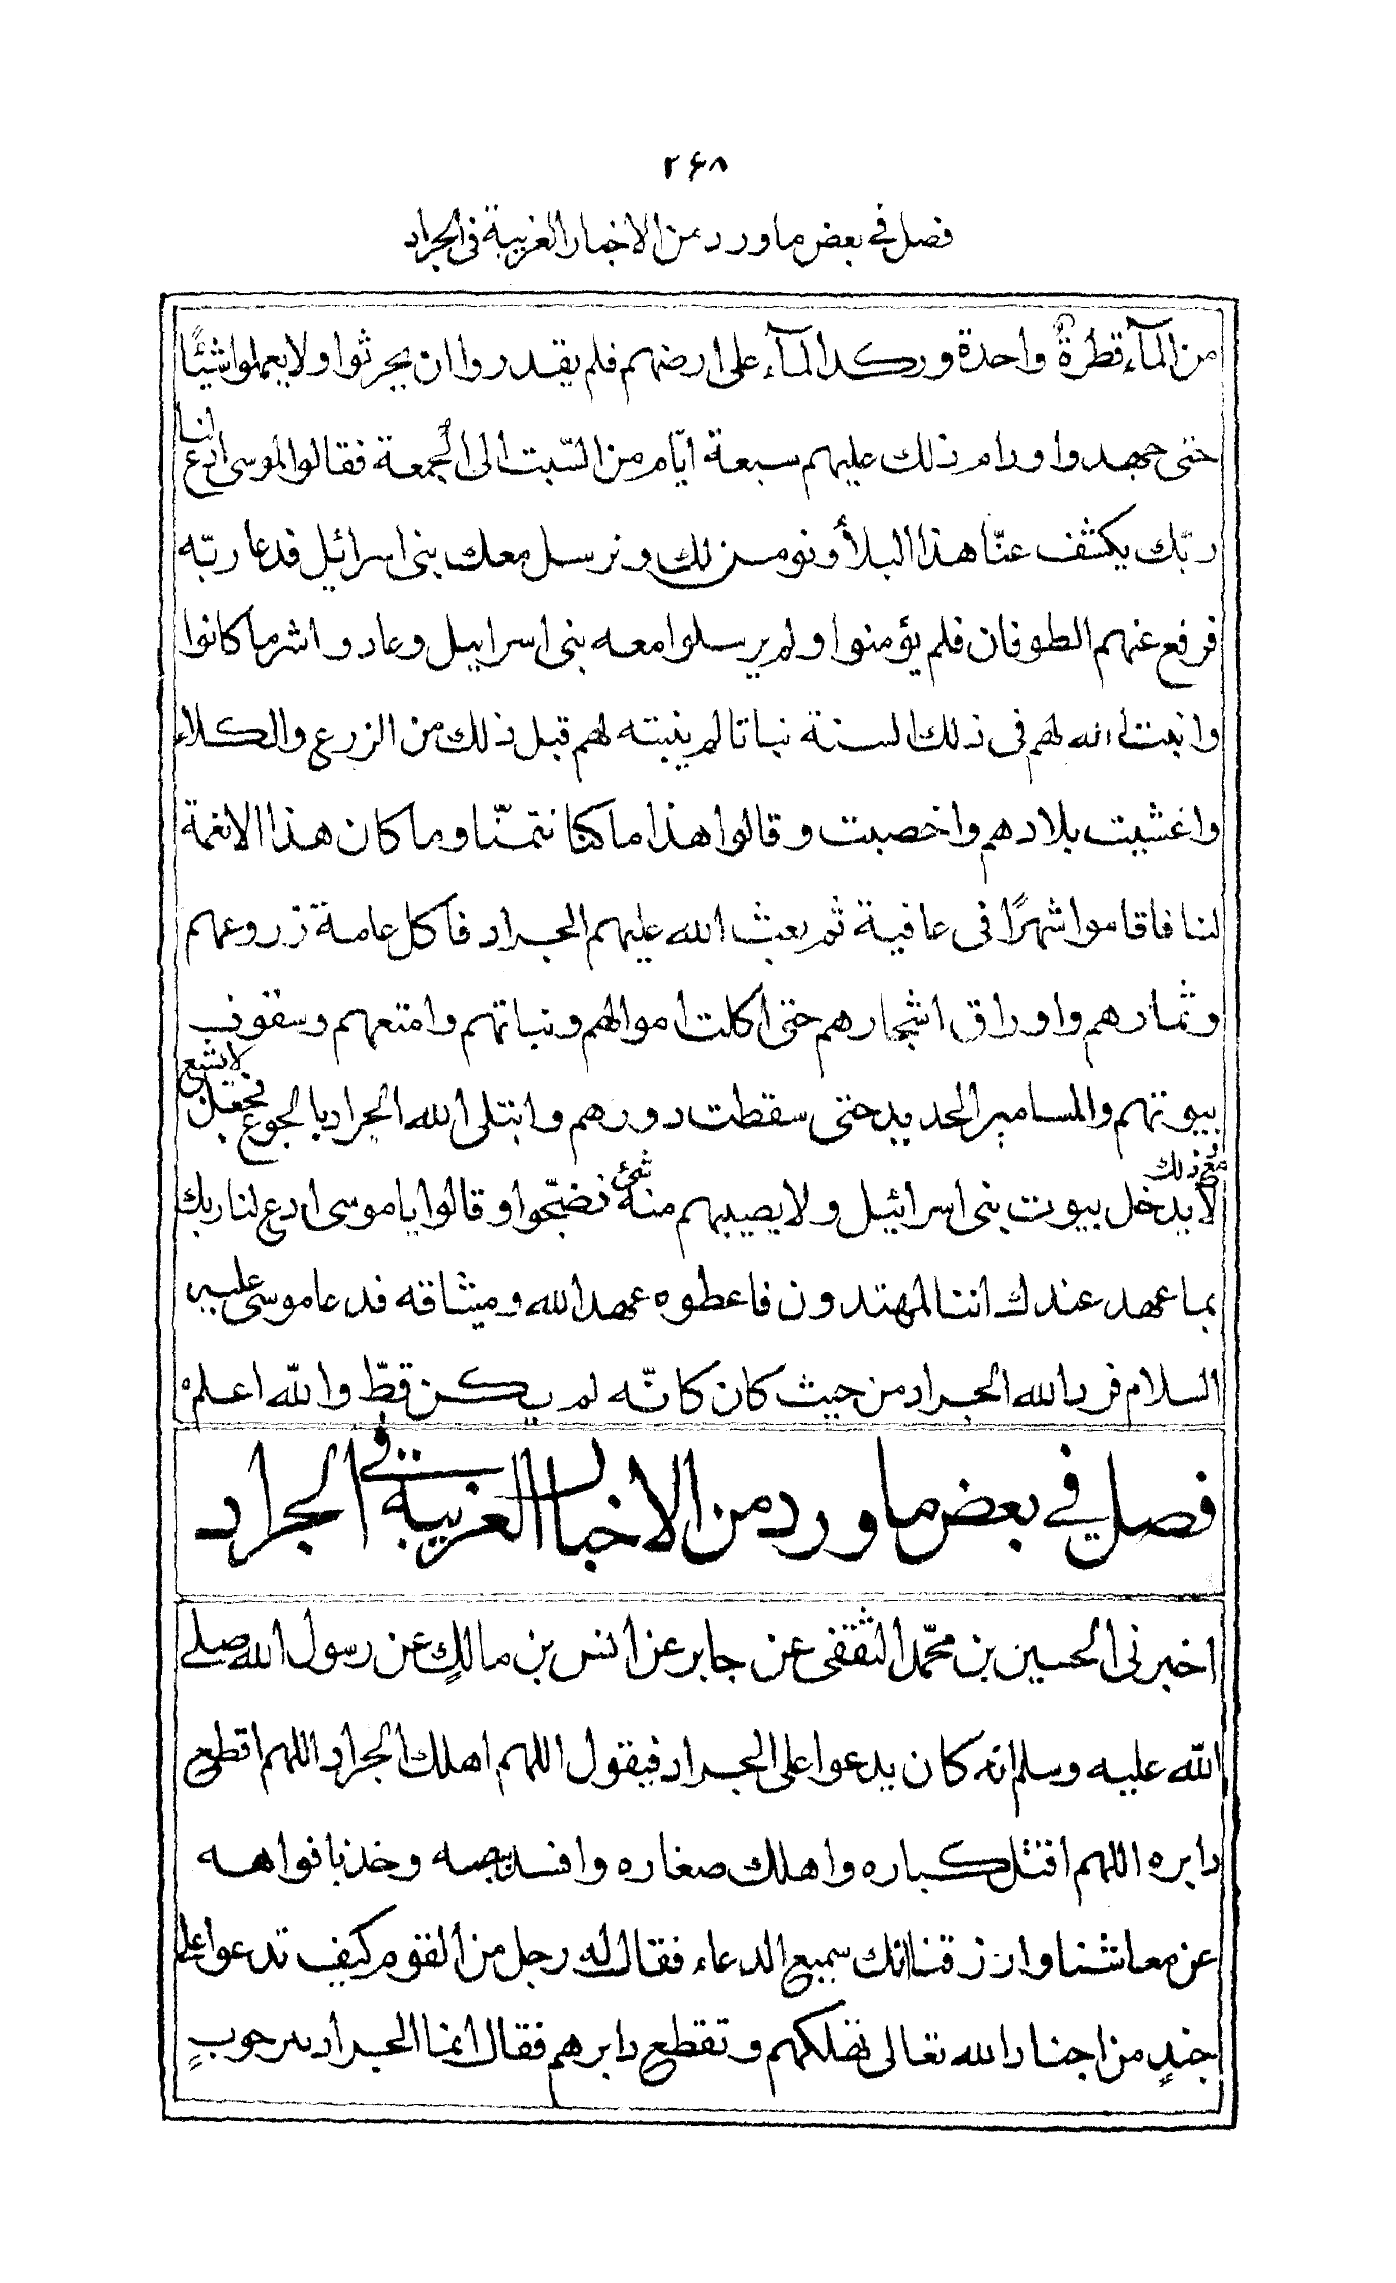 ۲۶۸
فصل في بعض ما ورد من الاخبار الغريبة فى الجراد
من المآء قطرةٌ واحدة وركد المآء على ارضهم فلم يقدروا ان يحرثوا ولا يعملوا شيئًا
حتى جهدوا ودام ذلك عليهم سبعة ايّام من السّبت الى الجُمعة فقالوا لموسى ادع لنا
ربّك يكشف عنّا هذا البلأ ونومن لك ونرسل معك بنى اسرائيل فدعا ربّه
فرفع عنهم الطوفان فلم يؤمنوا ولم يرسلوا معه بنى اسراييل وعادوا شر ما كانوا
وانبت الله لهم فى ذلك السنة نباتا لم ينبته لهم قبل ذلك من الزرع والكلاء
واعشبت بلادهم واخصبت وقالوا هذا ما كنا نتمنّا وما كان هذا الا نغمة
لنا فاقاموا شهرًا فى عافية ثم بعث الله عليهم الجراد فاكل عامة زروعهم
وثمارهم واوراق اشجارهم حتى اكلت اموالهم ونباتهم وامتعهم وسقوف
بيوتهم والمسامير الحديد حتى سقطت دورهم وابتلى الله الجراد بالجوع فجعل لا يشبع
مع ذلك
لا يدخل بيوت بنى اسرائيل ولا يصيبهم منه شئ فضجّوا وقالوا يا موسى ادع لنا ربك
بما عهد عندك اننا لمهتدون فاعطوه عهد الله وميثاقه فدعا موسى عليه
السلام فرد الله الجراد من حيث كان كانّه لم يكن قطّ والله اعلم
فصل في بعض ما ورد من الاخبار الغريبة في الجراد
اخبرنى الحسين بن محمّد الثقفى عن جابر عن انس بن مالكٍ عن رسول الله صلى
الله عليه وسلم انه كان يدعوا على الجراد فيقول اللهم اهلك الجراد اللهم اقطع
دابره اللهم اقتل كباره واهلك صغاره وافسد بيضه وخذ بافواهه
عن معاشنا وارزقنا انك سميع الدعاء فقال له رجل من القوم كيف تدعوا على
جندٍ من اجناد الله تعالى تهلكهم وتقطع دابرهم فقال انما الجراد